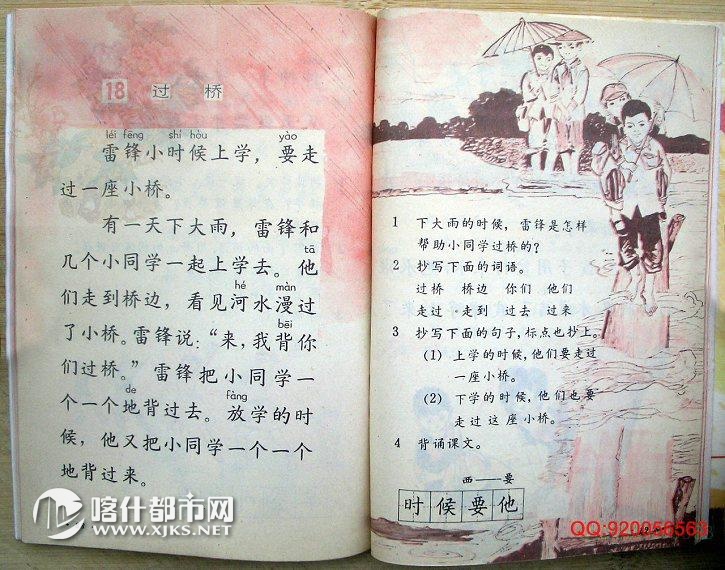 18 过桥
léi fēng shí hòu yào
雷锋小时候上学，要走
过一座小桥。
有一天下大雨，雷锋和
tā
几个小同学一起上学去。他
hé màn
们走到桥边，看见河水漫过
bēi
了小桥。雷锋说：“来，我背你
们过桥。”雷锋把小同学一
de fàng
一个一个地背过去。放学的时
候，他又把小同学一个一个
地背过来。
1 下大雨的时候，雷锋是怎样
帮助小同学过桥的？
2 抄写下面的词语。
过桥 桥边 你们 他们
走过 走到 过去 过来
3 抄写下面的句子，标点也抄上。
(1) 上学的时候，他们要走过
一座小桥。
(2) 下学的时候，他们也要
走过这座小桥。
4 背诵课文。
西——要
时候要他
喀什都市网
WWW.XJKS.NET
QQ:920056563